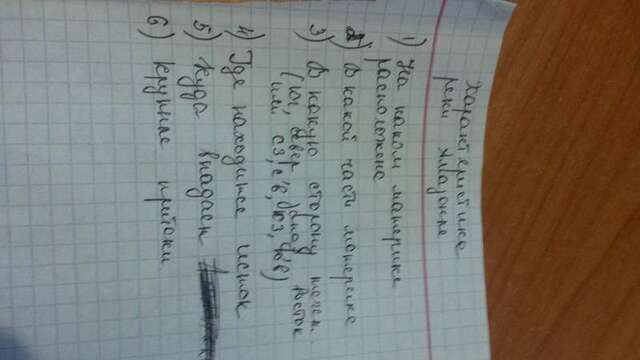 Характеристика
реки Амазонка
1) На каком материке
расположена
2) В какой части материка
3) В какую сторону течет
(юг, север, запад, восток
или сз, с/в, юз, ю/в)
4) Где находится исток
5) Куда впадает
6) крупные притоки